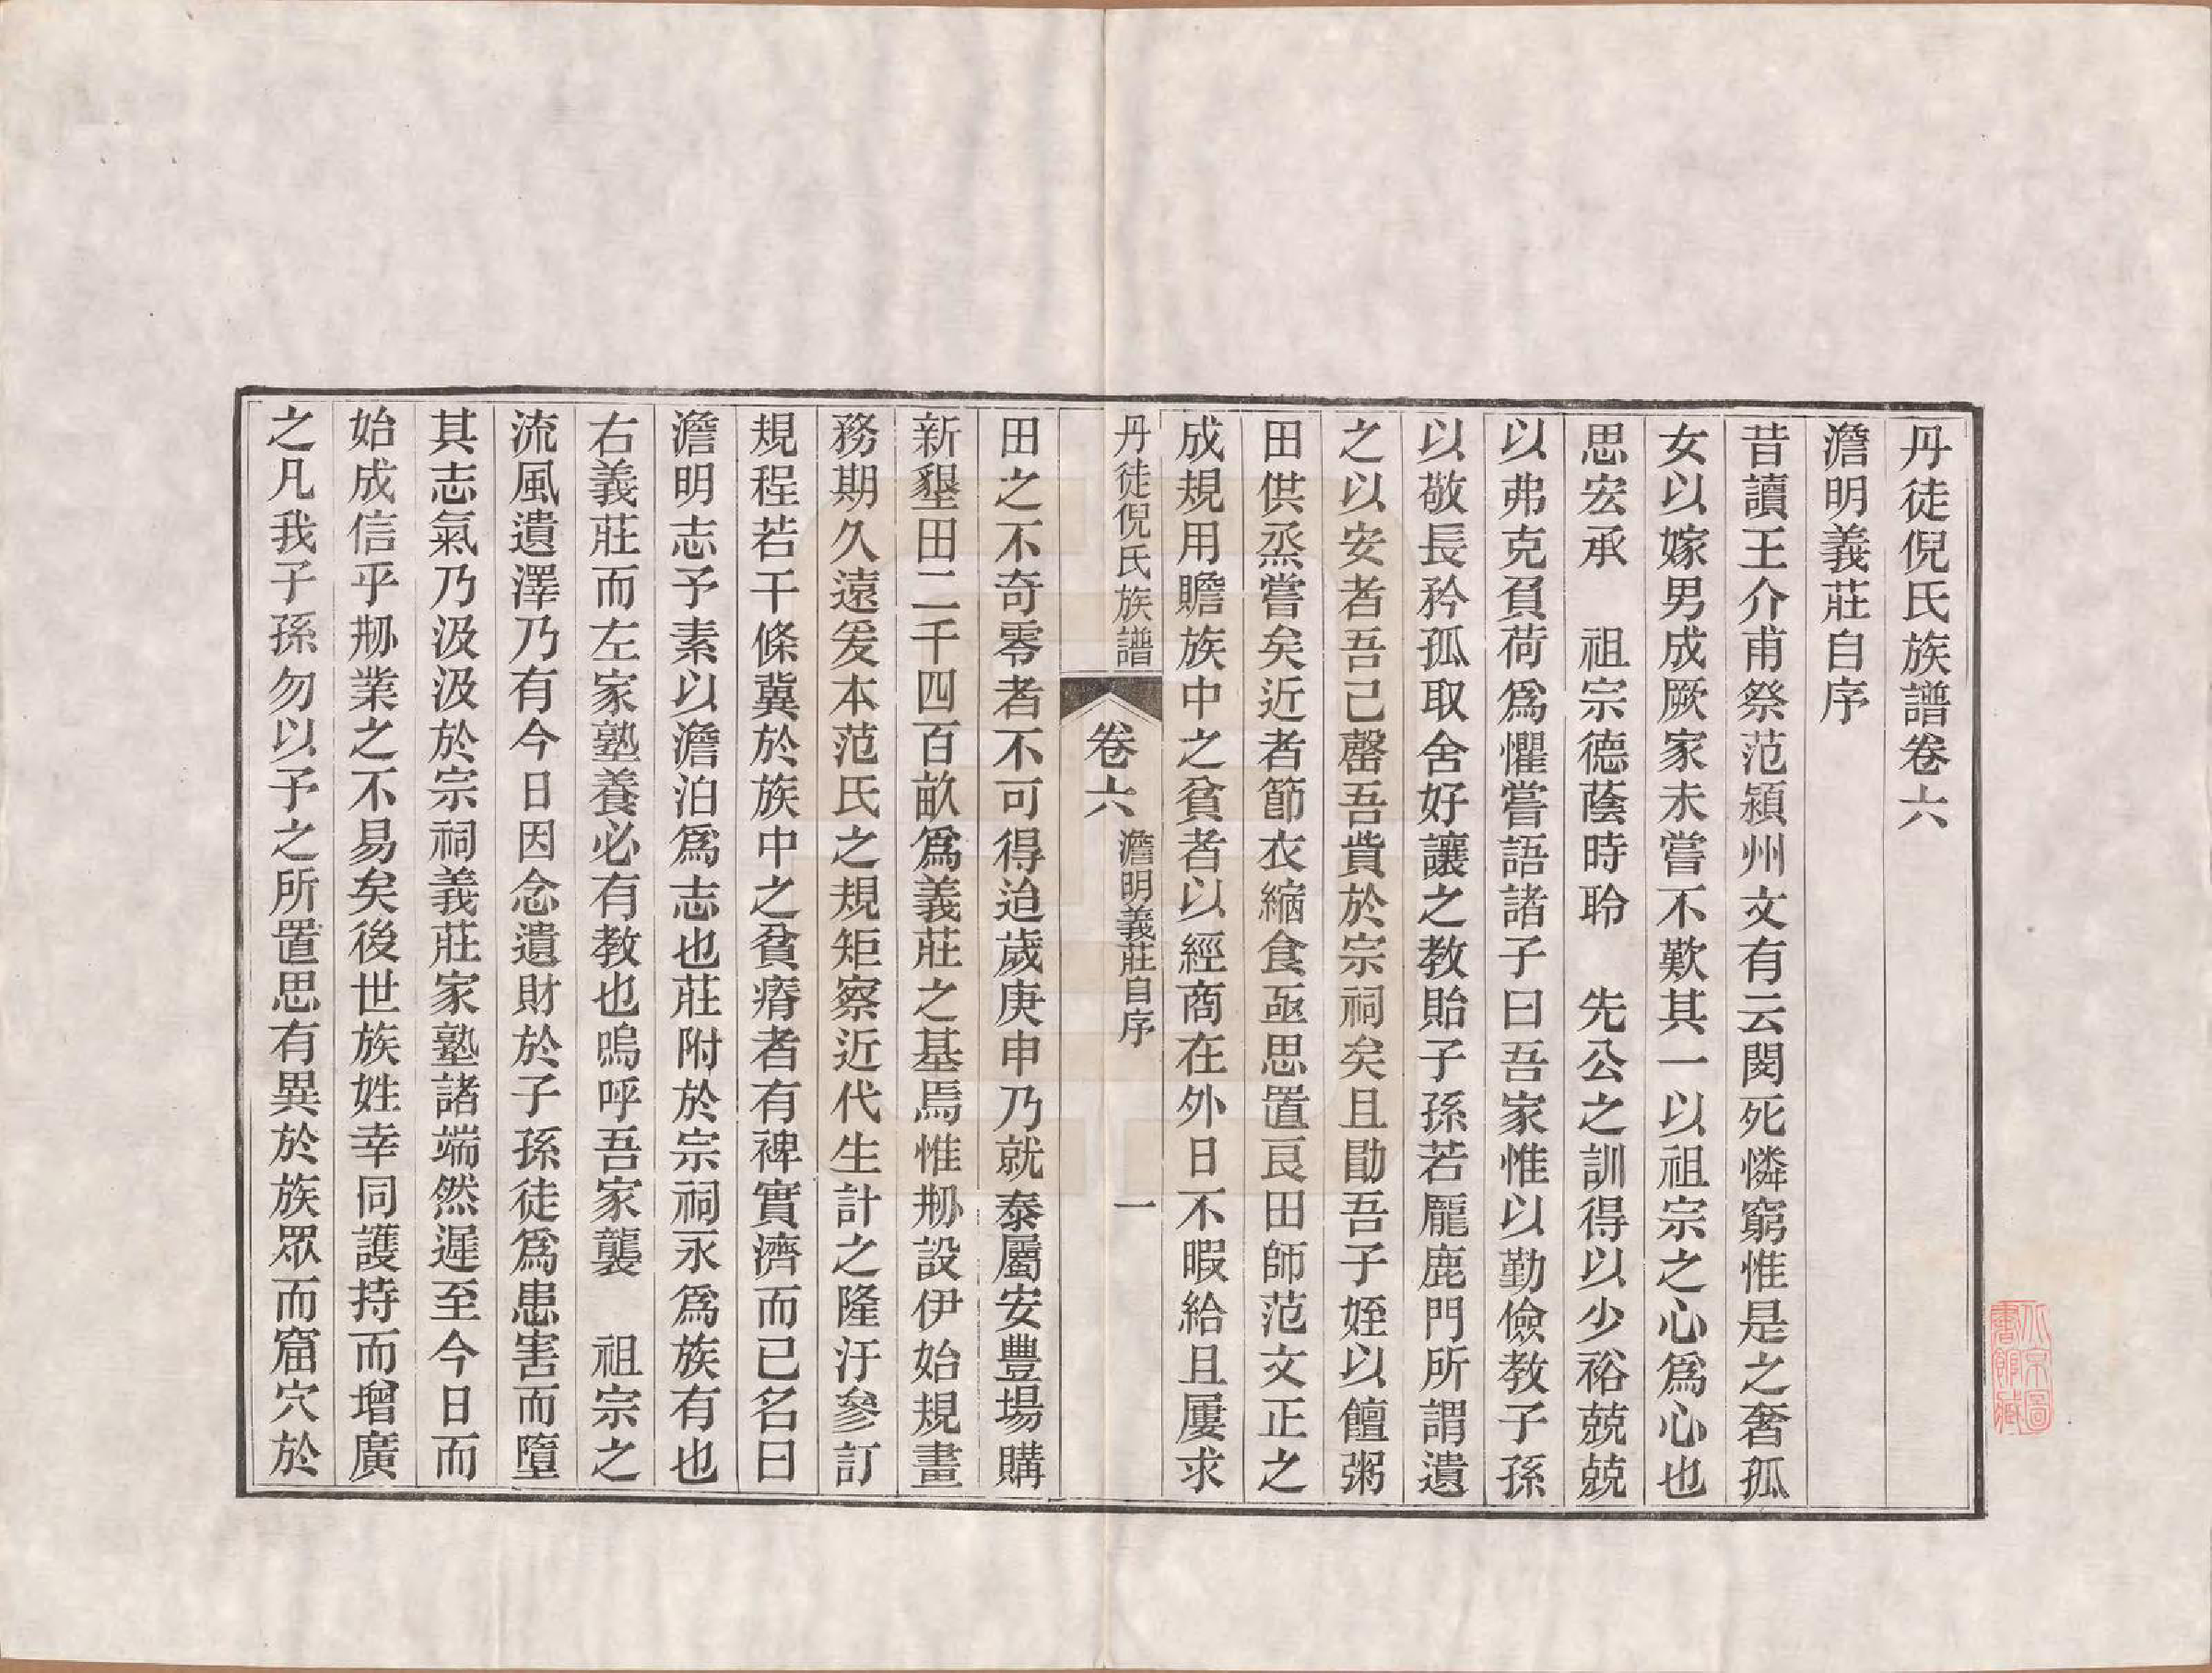 丹徒倪氏族譜卷六
澹明義莊自序
昔讀王介甫祭范潁州文有云閔死憐窮惟是之奢孤
女以嫁男成厥家未嘗不歎其一以祖宗之心爲心也
思宏承　祖宗德蔭時聆　先公之訓得以少裕兢兢
以弗克負荷爲懼嘗語諸子曰吾家惟以勤儉教子孫
以敬長矜孤取舍好讓之教貽子孫若龐鹿門所謂遺
之以安者吾己罄吾貲於宗祠矣且勖吾子姪以饘粥
田供烝嘗矣近者節衣縮食亟思置良田師范文正之
成規用贍族中之貧者以經商在外日不暇給且屢求
丹徒倪氏族譜　卷六　澹明義莊自序　一
田之不奇零者不可得迨歲庚申乃就泰屬安豐場購
新墾田二千四百畝爲義莊之基焉惟刱設伊始規畫
務期久遠爰本范氏之規矩察近代生計之隆汙參訂
規程若干條冀於族中之貧瘠者有裨實濟而已名曰
澹明志予素以澹泊爲志也莊附於宗祠永爲族有也
右義莊而左家塾養必有教也嗚呼吾家襲　祖宗之
流風遺澤乃有今日因念遺財於子孫徒爲患害而墮
其志氣乃汲汲於宗祠義莊家塾諸端然遲至今日而
始成信乎刱業之不易矣後世族姓幸同護持而增廣
之凡我子孫勿以予之所置思有異於族眾而窟穴於